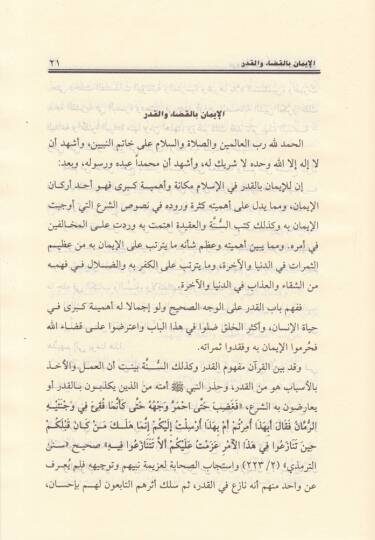 الإيمان بالقضاء والقدر ٢١
الإيمان بالقضاء والقدر
الحمد لله رب العالمين والصلاة والسلام على خاتم النبيين، وأشهد أن
لا إله إلا الله وحده لا شريك له، وأشهد أن محمداً عبده ورسوله، وبعد:
إن للإيمان بالقدر في الإسلام مكانة وأهمية كبرى فهو أحد أركان
الإيمان، ومما يدل على أهميته كثرة وروده في نصوص الشرع التي أوجبت
الإيمان به وكذلك كتب السُّنَّة والعقيدة اهتمت به وردت على المخالفين
في أمره. ومما يبين أهميته وعظم شأنه ما يترتب على الإيمان به من عظيم
الثمرات في الدنيا والآخرة، وما يترتب على الكفر به والضلال في فهمه
من الشقاء والعذاب في الدنيا والآخرة.
ففهم باب القدر على الوجه الصحيح ولو إجمالا له أهمية كبرى في
حياة الإنسان، وأكثر الخلق ضلوا في هذا الباب واعترضوا على قضاء الله
فحُرموا الإيمان به وفقدوا ثمراته.
وقد بين القرآن مفهوم القدر وكذلك السُّنَّة بينت أن العمل والأخذ
بالأسباب هو من القدر، وحذر النبي ﷺ أمته من الذين يكذبون بالقدر أو
يعارضون به الشرع، «فَغَضِبَ حَتَّى احْمَرَّ وَجْهُهُ حَتَّى كَأَنَّمَا فُقِئَ فِي وَجْنَتَيْهِ
الرُّمَّانُ فَقَالَ أَبِهَذَا أُمِرْتُمْ أَمْ بِهَذَا أُرْسِلْتُ إِلَيْكُمْ إِنَّمَا هَلَكَ مَنْ كَانَ قَبْلَكُمْ
حِينَ تَنَازَعُوا فِي هَذَا الأَمْرِ عَزَمْتُ عَلَيْكُمْ أَلاَّ تَتَنَازَعُوا فِيهِ» صحيح «سنن
الترمذي» (٢٢٣/٢) واستجاب الصحابة لعزيمة نبيهم وتوجيهه فلم يُعرف
عن واحد منهم أنه نازع في القدر، ثم سلك أثرهم التابعون لهم بإحسان،